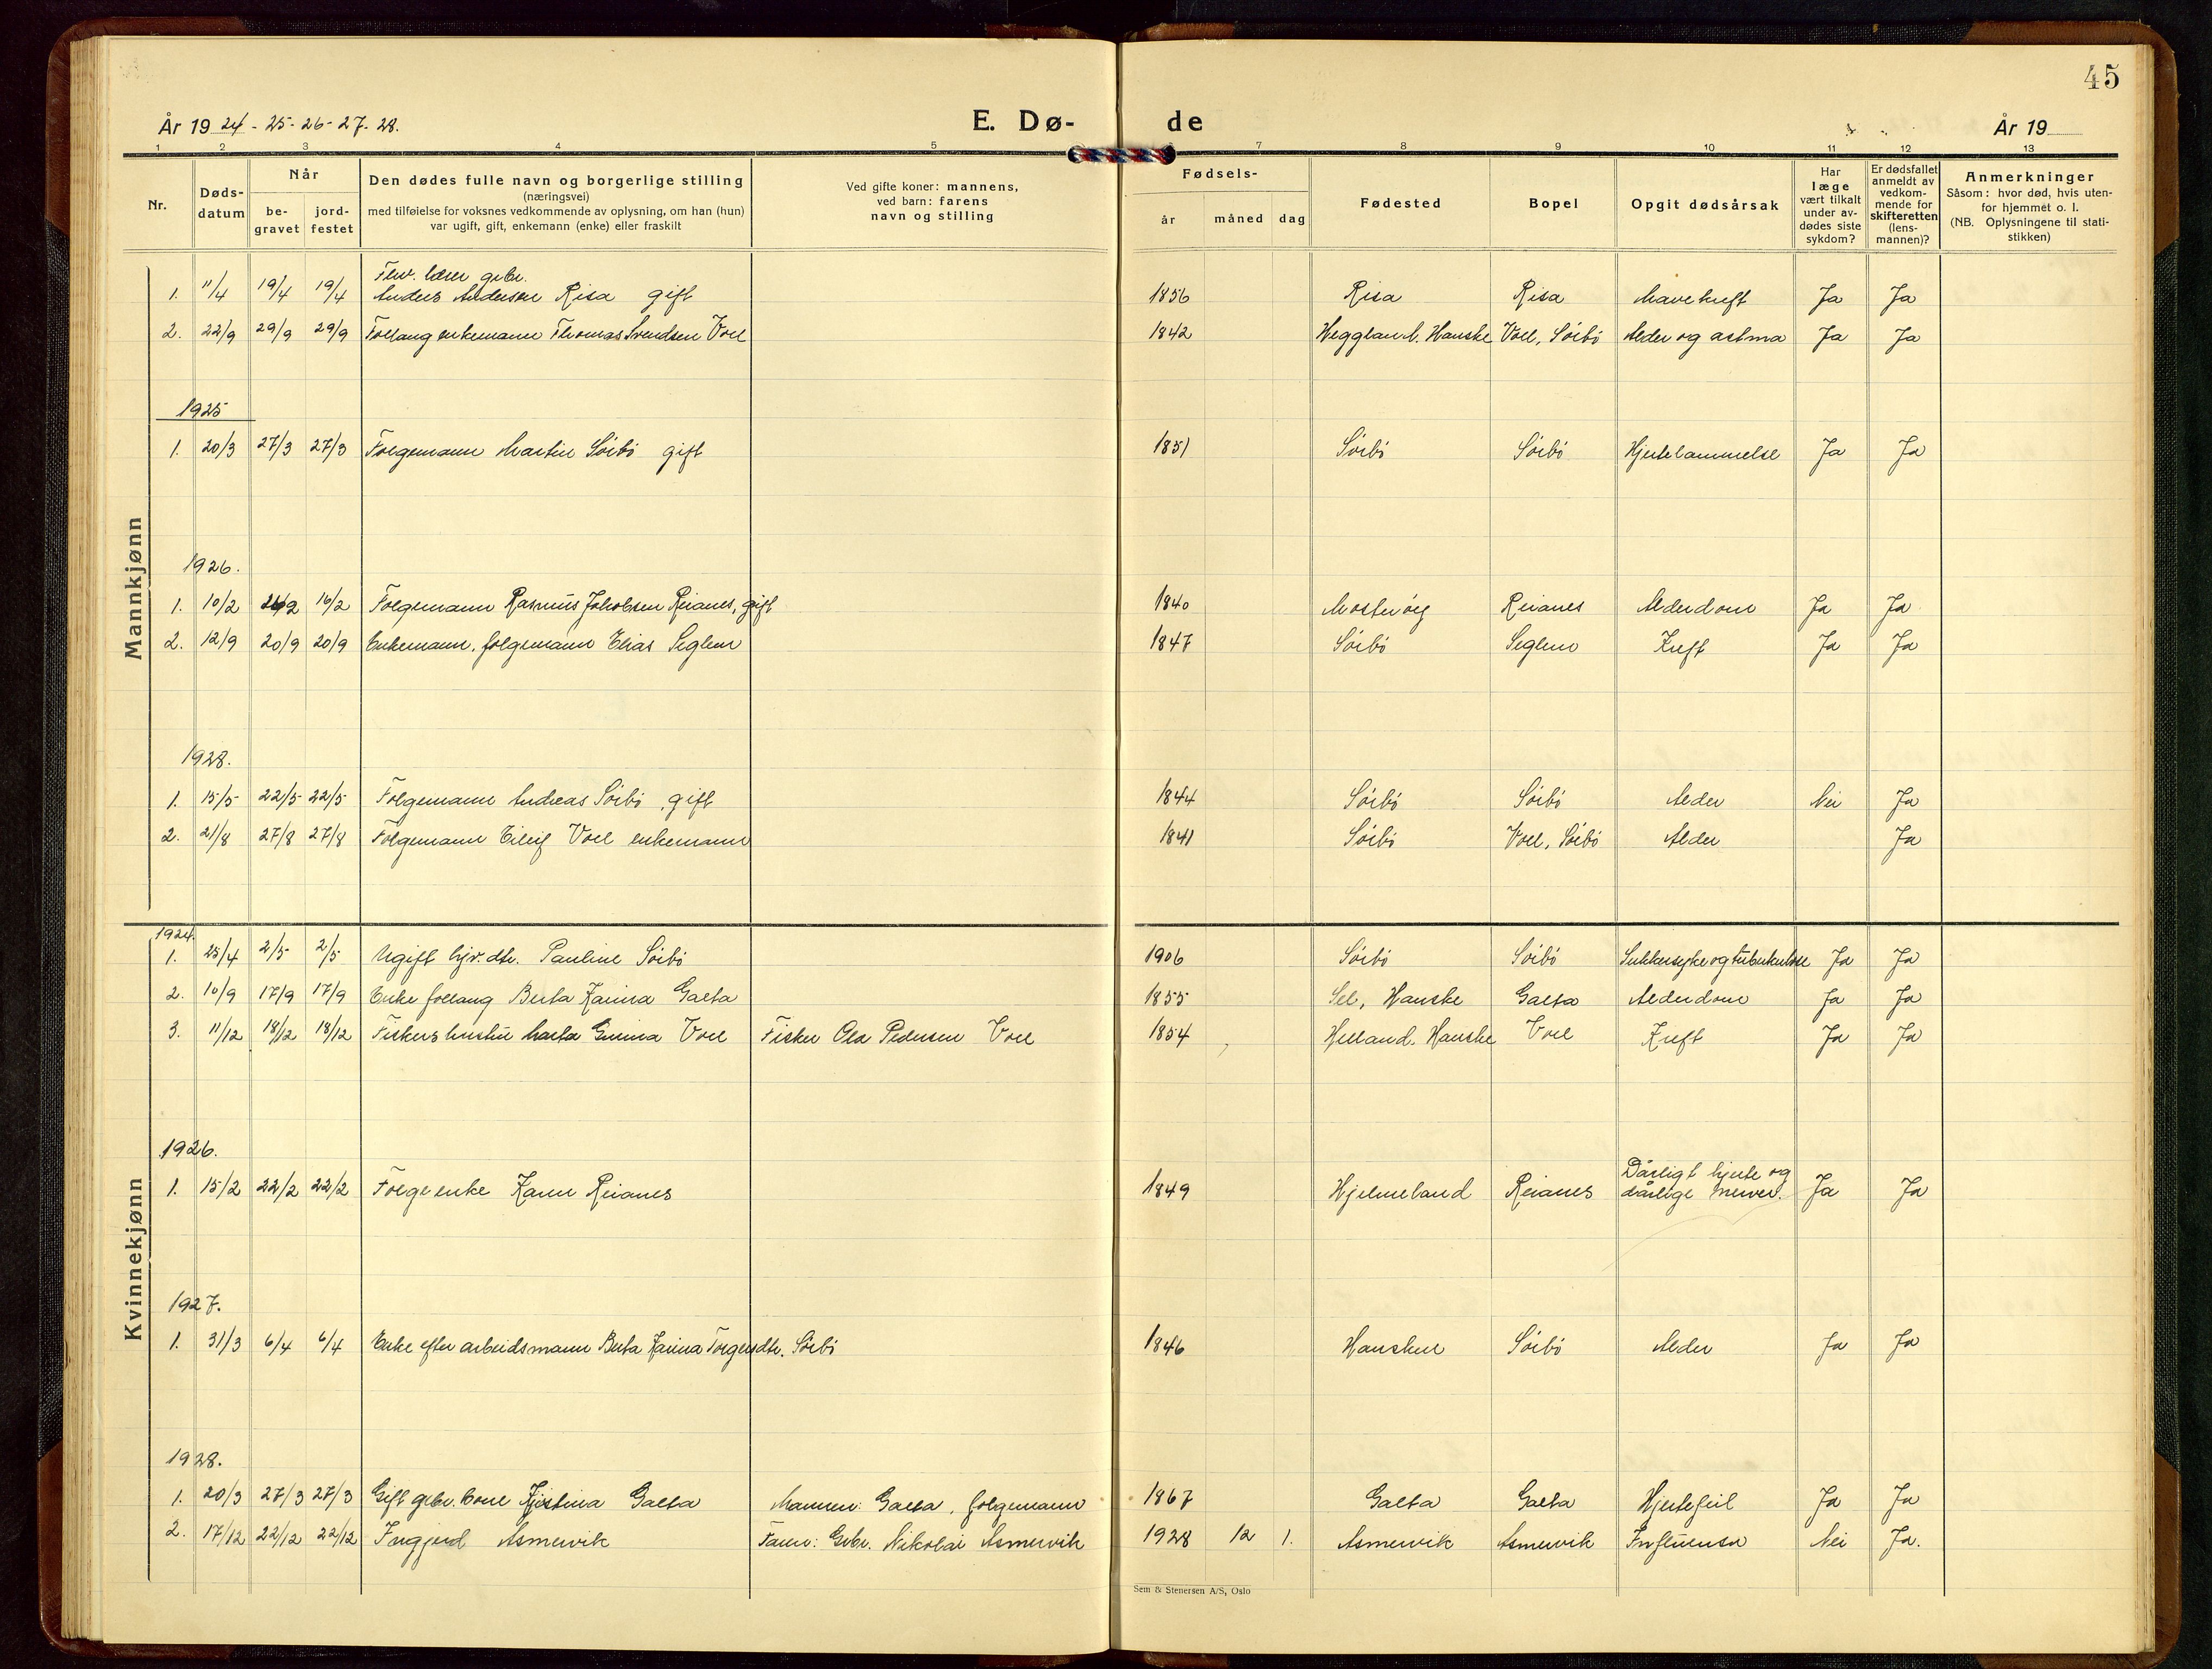 45
År 19 24 - 25 - 26 - 27 - 28.
E. Dø-
de
År 19
1 2 3 4 5 7 8 9 10 11 12 13
Nr.
Døds-
datum
Når
be-
gravet
jord-
festet
Den dødes fulle navn og borgerlige stilling
(næringsvei)
med tilføielse for voksnes vedkommende av oplysning, om han (hun)
var ugift, gift, enkemann (enke) eller fraskilt
Ved gifte koner: mannens,
ved barn: farens
navn og stilling
Fødsels-
år måned dag
Fødested
Bopel
Opgit dødsårsak
Har
læge
vært tilkalt
under av-
dødes siste
sykdom?
Er dødsfallet
anmeldt av
vedkom-
mende for
skifteretten
(lens-
mannen)?
Anmerkninger
Såsom: hvor død, hvis uten-
for hjemmet o. l.
(NB. Oplysningene til stati-
stikken)
Mannkjønn
Fhv. lærer gbr.
1. 11/4 19/4 19/4 Anders Andersen Risa gift 1856 Risa Risa Mavekreft Ja Ja
2. 22/9 29/9 29/9 enkemann Thomas Svendsen Voll 1842 Hegglund. Hauske Voll, Sörbö Alder og astma Ja Ja
1925
1. 20/3 27/3 27/3 Folgemann Martin Sörbö gift 1851 Sörbö Sörbö Hjertelammelse Ja Ja
1926.
1. 10/2 16/2 Folgemann Rasmus Jakobsen Reianes, gift 1840 Mosteröy Reianes Alderdom Ja Ja
2. 12/9 20/9 20/9 Enkemann, folgemann Elias Seglem 1847 Sörbö Seglem Kreft Ja Ja
1928.
1. 15/5 22/5 22/5 Folgemann Andreas Sörbö, gift 1844 Sörbö Sörbö Alder Nei Ja
2. 21/8 27/8 27/8 Folgemann Eileif Voll enkemann 1841 Sörbö Voll, Sörbö Alder Ja
Kvinnekjønn
1924.
1. 25/4 2/5 2/5 Ugift hjv. dtr. Pauline Sörbö 1906 Sörbö Sörbö Sukkersyke og tuberkulose Ja Ja
2. 10/9 17/9 17/9 Enke Berta Karina Galta 1855 Sel, Hauske Galta Alderdom Ja Ja
3. 11/12 18/12 18/12 Fiskers hustru Marta Gurina Voll Fisker Ola Pedersen Voll 1854 Helland. Hauske Voll Kreft Ja Ja
1926.
Dårligt hjerte og
1. 15/2 22/2 22/2 Folgeenke Karen Reianes 1849 Hjelmeland Reianes dårlige nerver. Ja Ja
1927.
1. 31/3 6/4 6/4 Enke efter arbeidsmann Berta Karina Torgersdtr. Sörbö 1846 Hausken Sörbö Alder Ja Ja
1928.
1. 20/3 27/3 27/3 Gift gbr. kone Kjistina Galta Mannen: Galta, folgemann 1867 Galta Galta Hjertefeil Ja Ja
2. 17/12 22/12 22/12 Ingjerd Asmervik Faren: Gbr. Nikolai Asmervik 1928 12 1. Asmervik Asmervik Influensa Nei Ja.
Sem & Stenersen A/S, Oslo